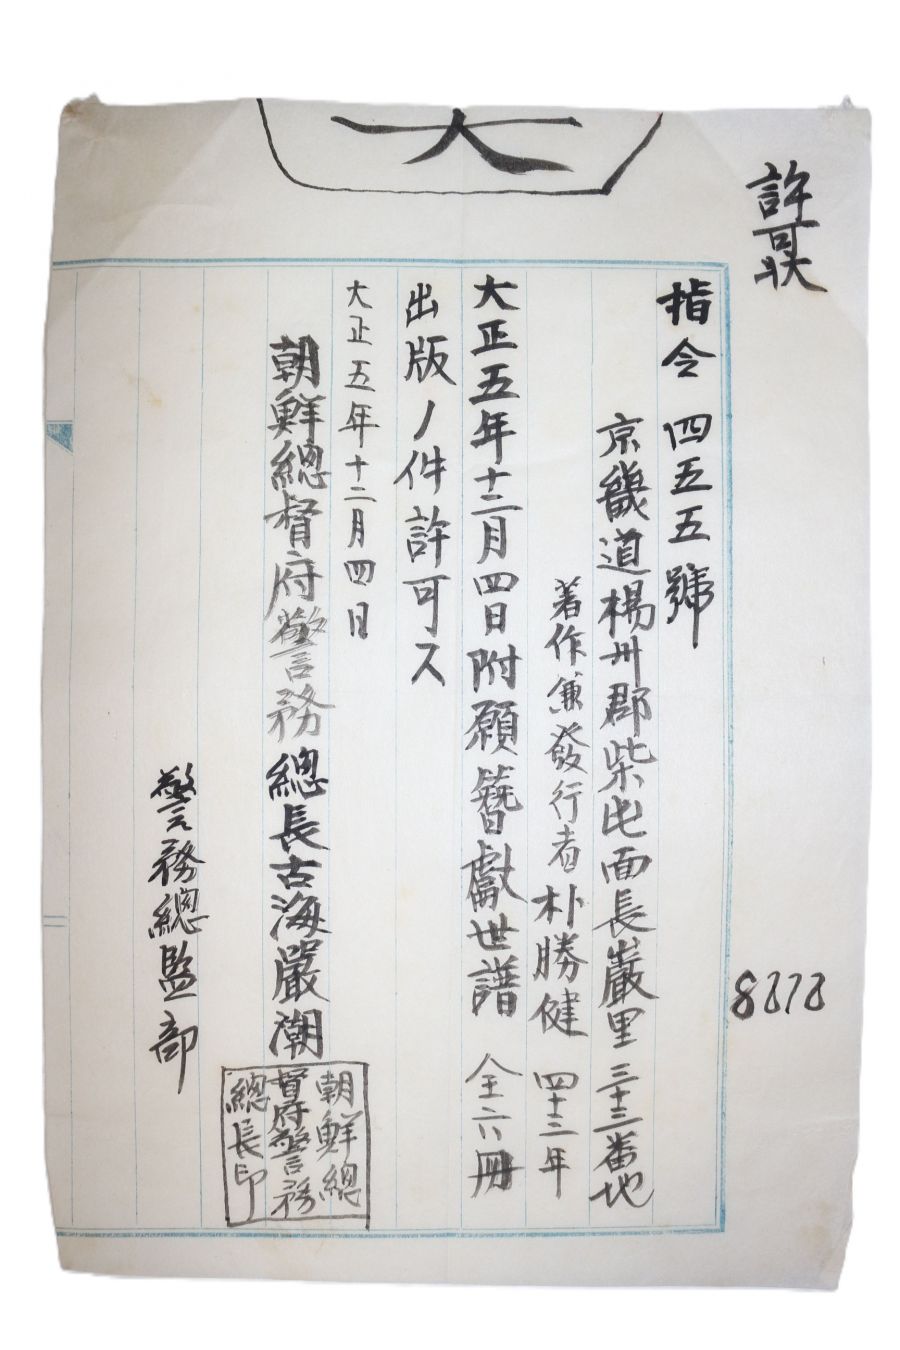 大
許可状
指令 四五五號
京畿道楊州郡柴屯面長巖里三十三番地
著作兼發行者 朴勝健 四十二年
大正五年十二月四日附願簪獻世譜 全六冊
出版ノ件許可ス
大正五年十二月四日
朝鮮總督府警務總長古海嚴潮
朝鮮總
督府警務
總長印
警務總監部